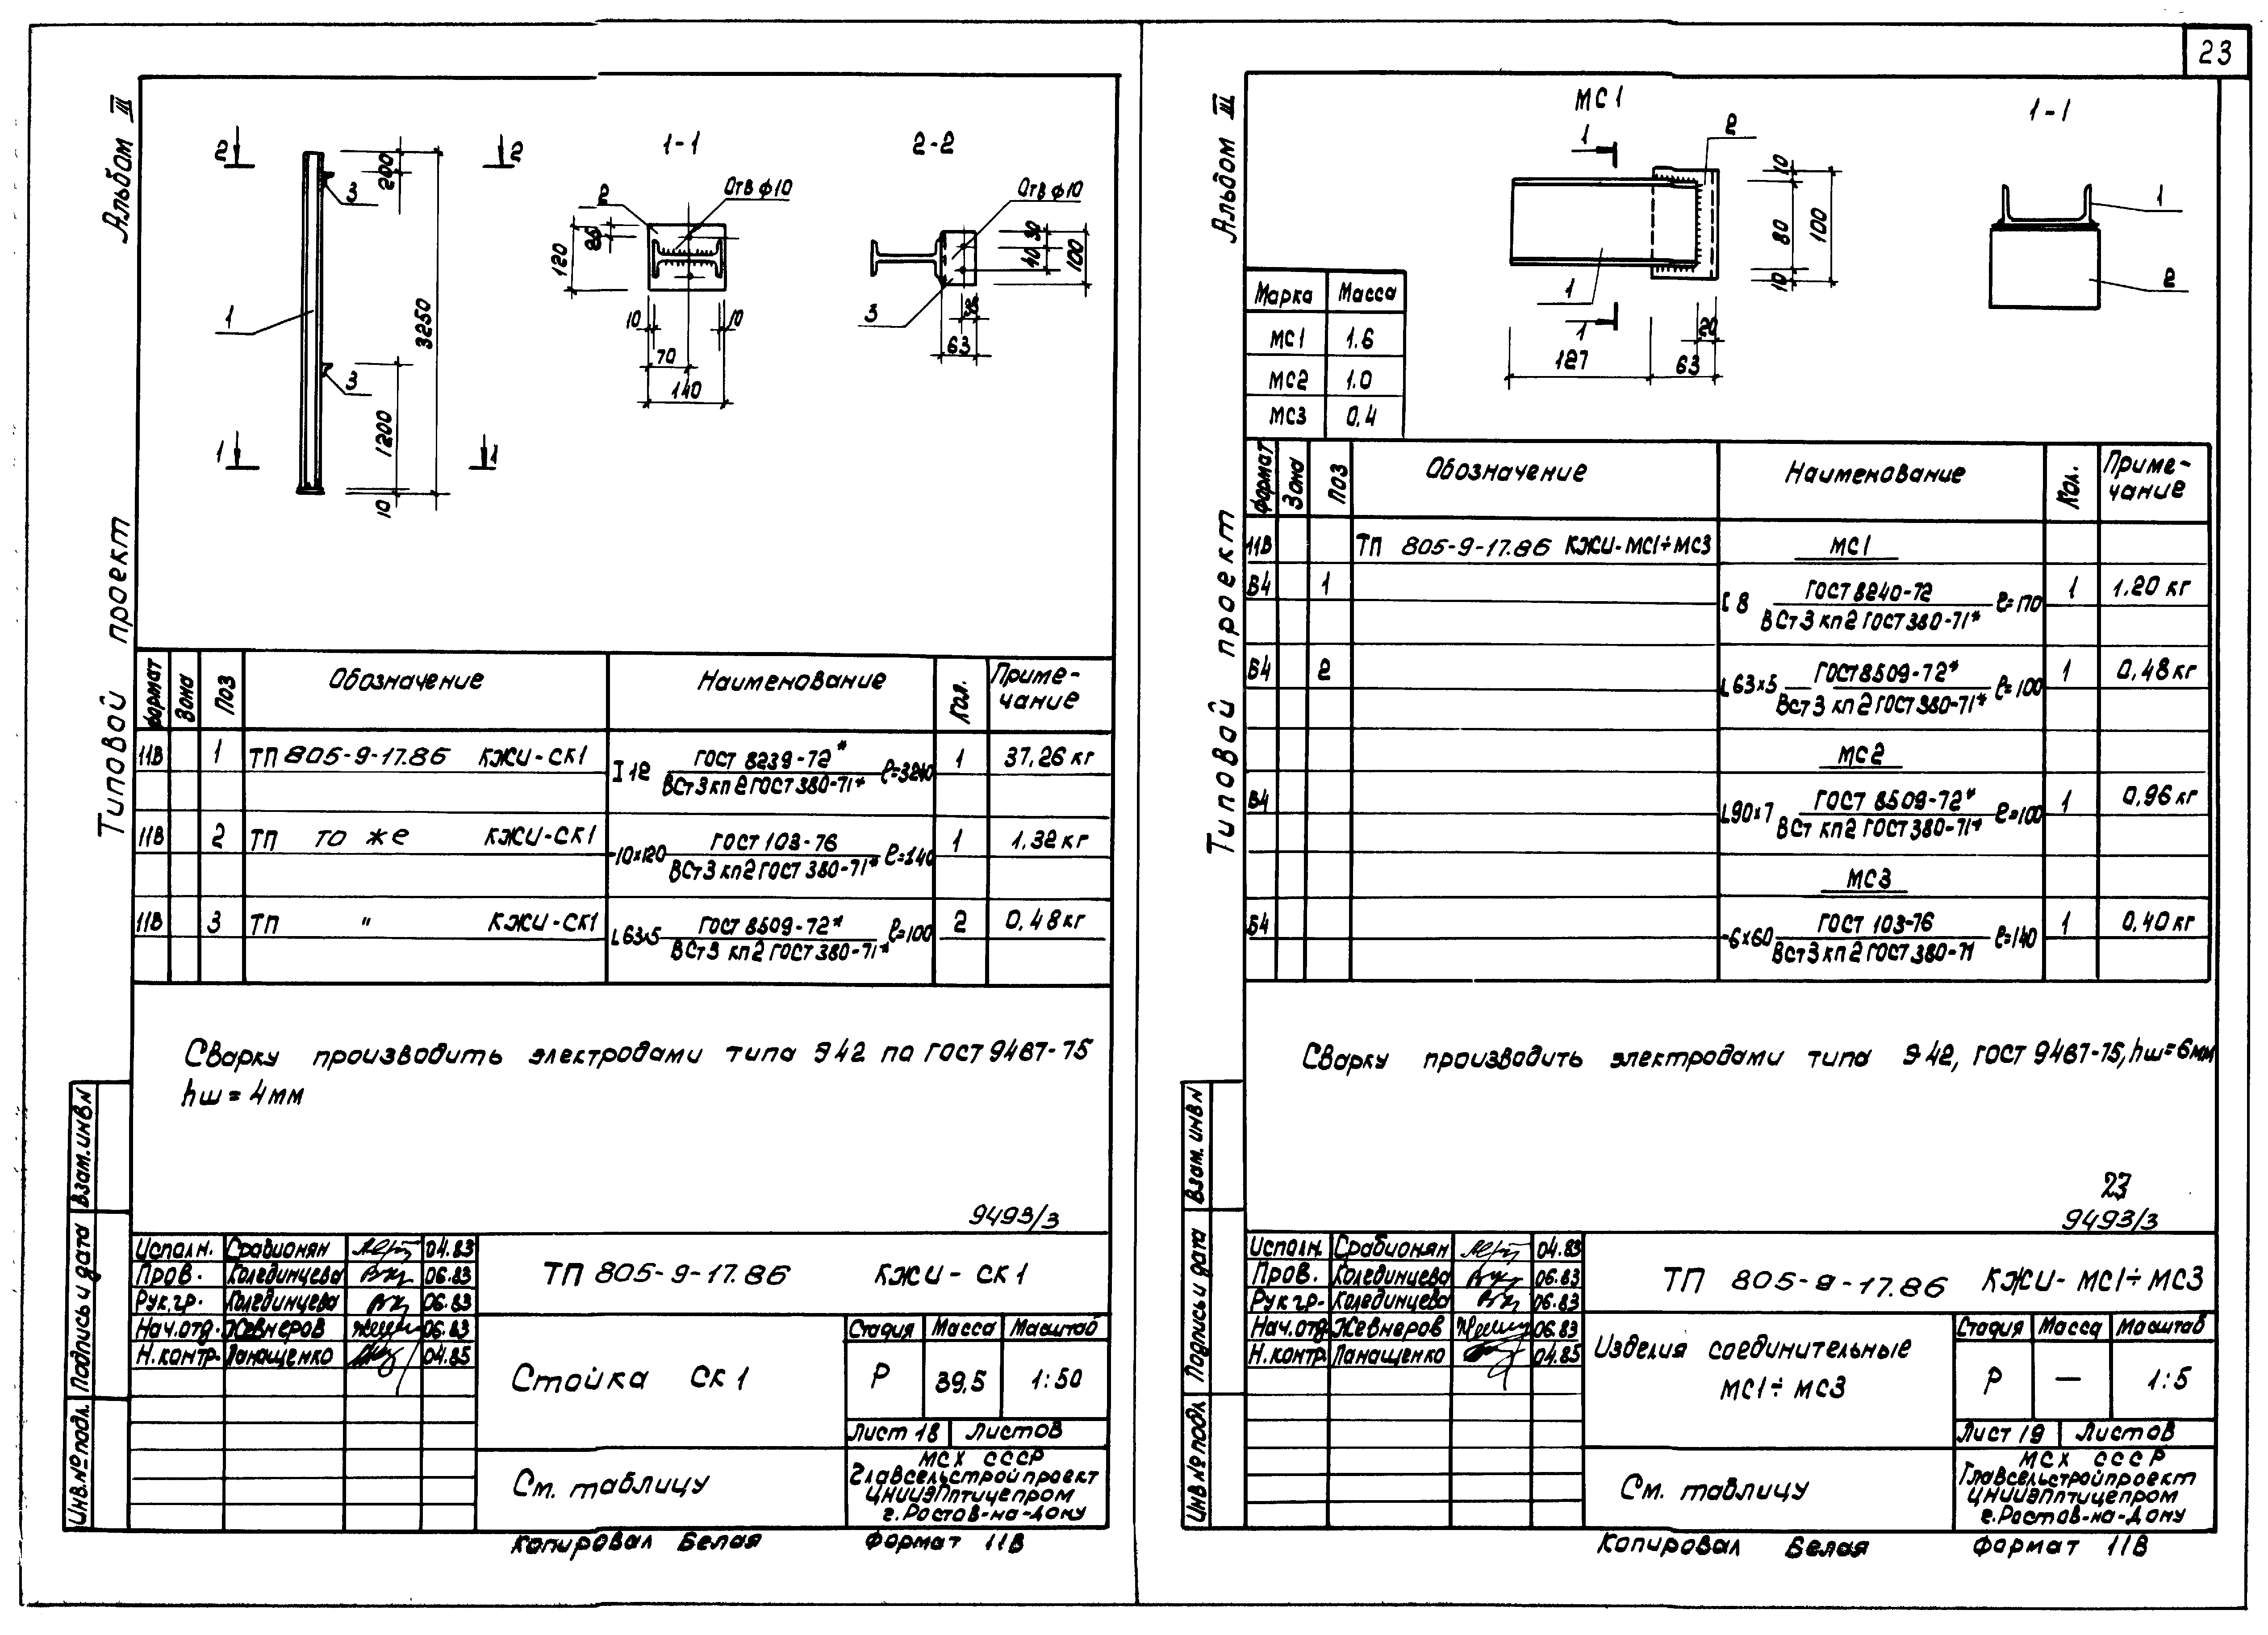 23
Альбом III
Типовой проект
2 2
3
200
1
3250
3
1200
1 1
10
1-1
2
Отв ф10
25
120
10 10
70
140
2-2
Отв ф10
30
40
100
3
35
63
формат Зона Поз Обозначение Наименование Кол. Приме-
чание
11В 1 ТП 805-9-17.86 КЖИ-СК1 I 12 ГОСТ 8239-72* ℓ=3240 1 37,26 кг
ВСт3кп2 ГОСТ 380-71*
11В 2 ТП то же КЖИ-СК1 -10х120 ГОСТ 103-76 ℓ=140 1 1,32 кг
ВСт3 кп2 ГОСТ 380-71*
11В 3 ТП " КЖИ-СК1 L 63х5 ГОСТ 8509-72* ℓ=100 2 0,48 кг
ВСт3 кп2 ГОСТ 380-71*
Сварку производить электродами типа Э42 по ГОСТ 9467-75
hш = 4мм
9493/3
Взам.инв.N
Подпись и дата
Инв.№ подл.
Исполн. Срабионян 04.83
Пров. Колединцева 06.83
Рук.гр. Колединцева 06.83
Нач.отд. Жевнеров 06.83
Н.контр. Панащенко 04.85
ТП 805-9-17.86 КЖИ-СК1
Стойка СК1
Стадия Масса Масштаб
Р 39,5 1:50
Лист 18 Листов
См. таблицу
МСХ СССР
Главсельстройпроект
ЦНИИЭПптицепром
г.Ростов-на-Дону
Копировал Белая Формат 11В
Альбом III
Типовой проект
МС1
1
2
10
80
100
10
1
1
20
127
63
1-1
1
2
Марка Масса
МС1 1.6
МС2 1.0
МС3 0,4
формат Зона Поз Обозначение Наименование Кол. Приме-
чание
11В ТП 805-9-17.86 КЖИ-МС1÷МС3 МС1
Б4 1 [ 8 ГОСТ 8240-72 ℓ=170 1 1.20 кг
ВСт3 кп2 ГОСТ 380-71*
Б4 2 L 63х5 ГОСТ 8509-72* ℓ=100 1 0,48 кг
ВСт3 кп2 ГОСТ 380-71*
МС2
Б4 L90х7 ГОСТ 8509-72* ℓ=100 1 0,96 кг
ВСт кп2 ГОСТ 380-71*
МС3
Б4 -6х60 ГОСТ 103-76 ℓ=140 1 0,40 кг
ВСт3 кп2 ГОСТ 380-71
Сварку производить электродами типа Э42, ГОСТ 9467-75, hш=6мм
23
9493/3
Взам. инв.N
Подпись и дата
Инв.№ подл
Исполн. Срабионян 04.83
Пров. Колединцева 06.83
Рук гр. Колединцева 06.83
Нач.отд Жевнеров 06.83
Н.контр. Панащенко 04.85
ТП 805-9-17.86 КЖИ-МС1÷МС3
Изделия соединительные
МС1÷МС3
Стадия Масса Масштаб
Р — 1:5
Лист 19 Листов
См. таблицу
МСХ СССР
Главсельстройпроект
ЦНИИЭПптицепром
г.Ростов-на-Дону
Копировал Белая Формат 11В